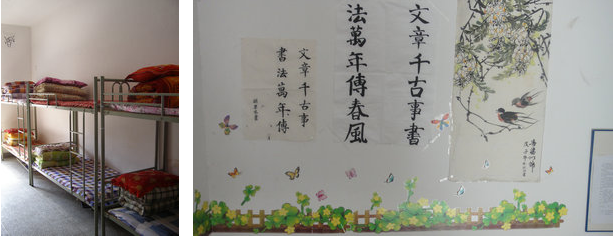 文章千古事書
法萬年傳春風
文章千古事
書法萬年傳